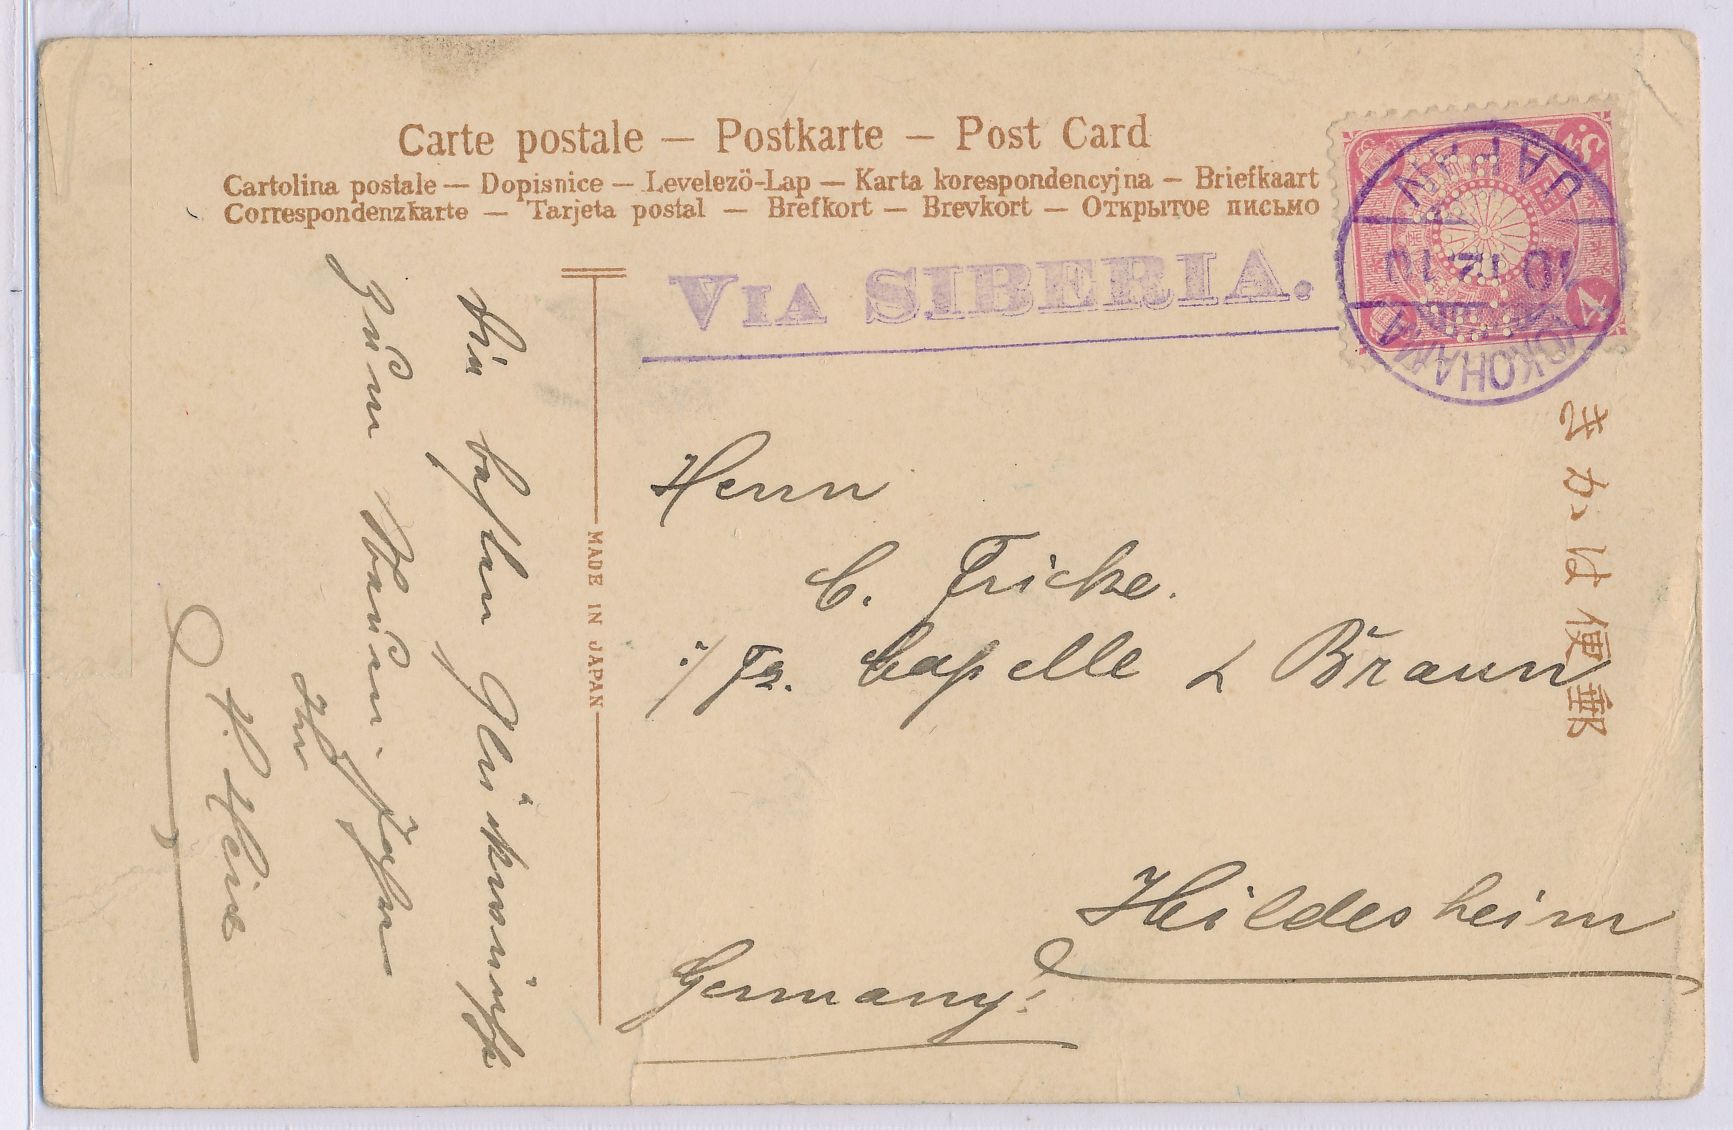 Carte postale — Postkarte — Post Card
Cartolina postale — Dopisnice — Levelezö-Lap — Karta korespondencyjna — Briefkaart
Correspondenzkarte — Tarjeta postal — Brefkort — Brevkort — Открытое письмо
VIA SIBERIA.
JAPAN
10.12.10
YOKOHAMA
4
きかは便郵
MADE IN JAPAN
Herrn
C. Fricke.
Fr. Capelle & Braun
Hildesheim
Germany!
Die besten Glückwünsche
zum Neuen Jahr
Ihr
H. Heine